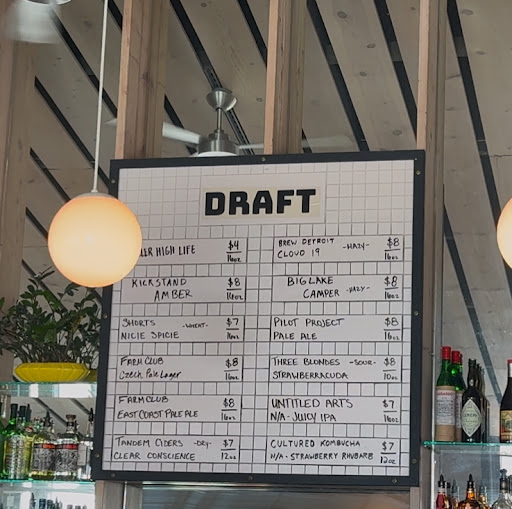 DRAFT
HIGH LIFE $4
16oz
KICKSTAND $8
AMBER 16oz
SHORTS -WHEAT- $7
NICIE SPICIE 16oz
FARM CLUB $8
Czech Pale Lager 16oz
FARM CLUB $8
EAST COAST PALE ALE 16oz
TANDEM CIDERS -DRY- $7
CLEAR CONSCIENCE 12oz
BREW DETROIT -HAZY- $8
CLOUD 19 16oz
BIG LAKE $8
CAMPER -HAZY- 16oz
PILOT PROJECT $8
PALE ALE 16oz
THREE BLONDES -SOUR- $8
STRAWBERRACUDA 10oz
UNTITLED ARTS $7
N/A - JUICY IPA 16oz
CULTURED KOMBUCHA $7
N/A - STRAWBERRY RHUBARB 12oz